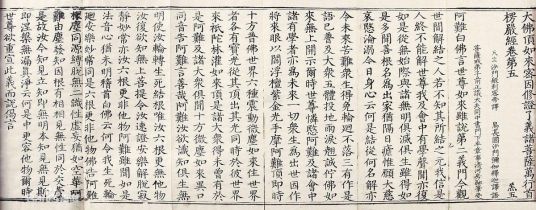 大佛頂如來密因修證了義諸菩薩萬行首
楞嚴經卷第五
阿難白佛言世尊如來雖說第二義門今觀
世間解結之人若不知其所結之元我信是
人終不能解世尊我及會中有學聲聞亦復
如是從無始際與諸無明俱滅俱生雖得如
是多聞善根名為出家猶隔日瘧惟願大慈
哀愍淪溺今日身心云何是結從何名解亦
令未來苦難眾生得免輪迴不落三有作是
語已普及大眾五體投地雨淚翹誠佇佛如
來無上開示爾時世尊憐愍阿難及諸會中
諸有學者亦為未來一切眾生為出世因作
將來眼以閻浮檀紫光金手摩阿難頂即時
十方普佛世界六種震動微塵如來住世界
者各有寶光從其頂出其光同時於彼世界
來祇陀林灌如來頂是諸大眾得未曾有於
是阿難及諸大眾俱聞十方微塵如來異口
同音告阿難言善哉阿難汝欲識知俱生無
明使汝輪轉生死結根唯汝六根更無他物
汝復欲知無上菩提令汝速證安樂解脫寂
靜妙常亦汝六根更非他物阿難雖聞如是
法音心猶未明稽首白佛云何令我生死輪
迴安樂妙常同是六根更非他物佛告阿難
根塵同源縛脫無二識性虛妄猶如空華阿
難由塵發知因根有相相見無性同於交蘆
是故汝今知見立知即無明本知見無見斯
即涅槃無漏真淨云何是中更容他物爾時
世尊欲重宣此義而說偈言